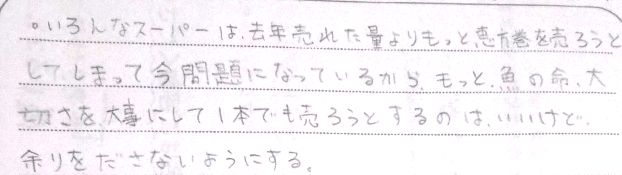 。いろんなスーパーは、去年売れた量よりもっと、恵方巻を売ろうと
してしまって今問題になっているから、もっと、魚の命、大
切さを、大事にして1本でも売ろうとするのは、いいけど、
余りをださないようにする。